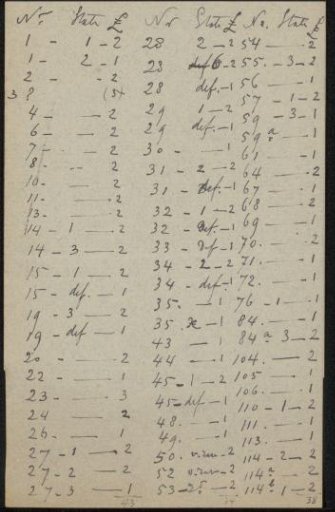 No. State £
1 - 1 - 2
1 - 2 - 1
2 - - 2
3 8 (5+
4 - — 2
6 - — 2
7 - — 2
8 - — 2
10 - — 2
11 - — 2
13 - — 2
14 - 1 — 2
14 - 3 — 2
15 - 1 — 2
15 - def. — 1
19 - 3 — 2
19 - def — 1
20 - — 2
22 - — 1
23 - — 3
24 — 2
26 - — 1
27 - 1 — 2
27 - 2 — 2
27 - 3 — 1
43
No State £
28 2 - 2
28 - 2
28 def. - 1
29 1 - 2
29 def. - 1
30 - — 1
31 - 2 - 2
31 - def. - 1
32 - 1 - 2
32 - def. - 1
33 - def - 1
34 - 2 - 2
34 - def - 1
35. — 1
35. — 1
43 — 1
44 — 1
45 - 1 - 2
45 - def - 1
48. — 1
49. — 1
50. - 2
52 - 2
53 - - 2
No. State £
54 — 2
55. - 3 - 2
56 — 1
57 - 1 - 2
59 - 3 - 1
59 a — 1
61 — 1
64 — 2
67 — 1
68 — 2
69 — 1
70. — 2
71. — 1
72. — 1
76 - 1 — 1
84. — 1
84 a 3 - 2
104. — 2
105 — 1
106. — 1
110 - 1 - 2
111. — 1
113. — 1
114 - 2 - 2
114 a — 2
114 b 1 - 1
38